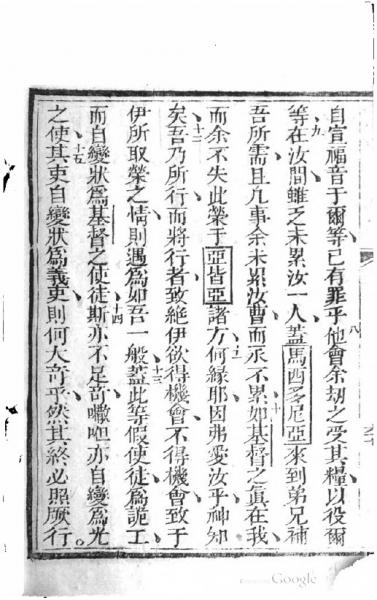 自宣福音于爾等已有罪乎他會余刼之受其糧以役爾
等在汝間雖乏未累汝一人蓋馬西多尼亞來到弟兄補
吾所需且凡事余未累汝曹而永不累如基督之眞在我
而余不失此榮于亞皆亞諸方何緣耶因弗愛汝乎神知
矣吾乃所行而將行者致絶伊欲得機會不得機會致于
伊所取榮之情則遇爲如吾一般蓋此等假使徒爲詭工
而自變狀爲基督之使徒斯亦不足竒𠹌咺亦自變爲光
之使其吏自變狀爲義吏則何大竒乎然其終必照厥行
八
九
十
十一
十二
十三
十四
十五
Google